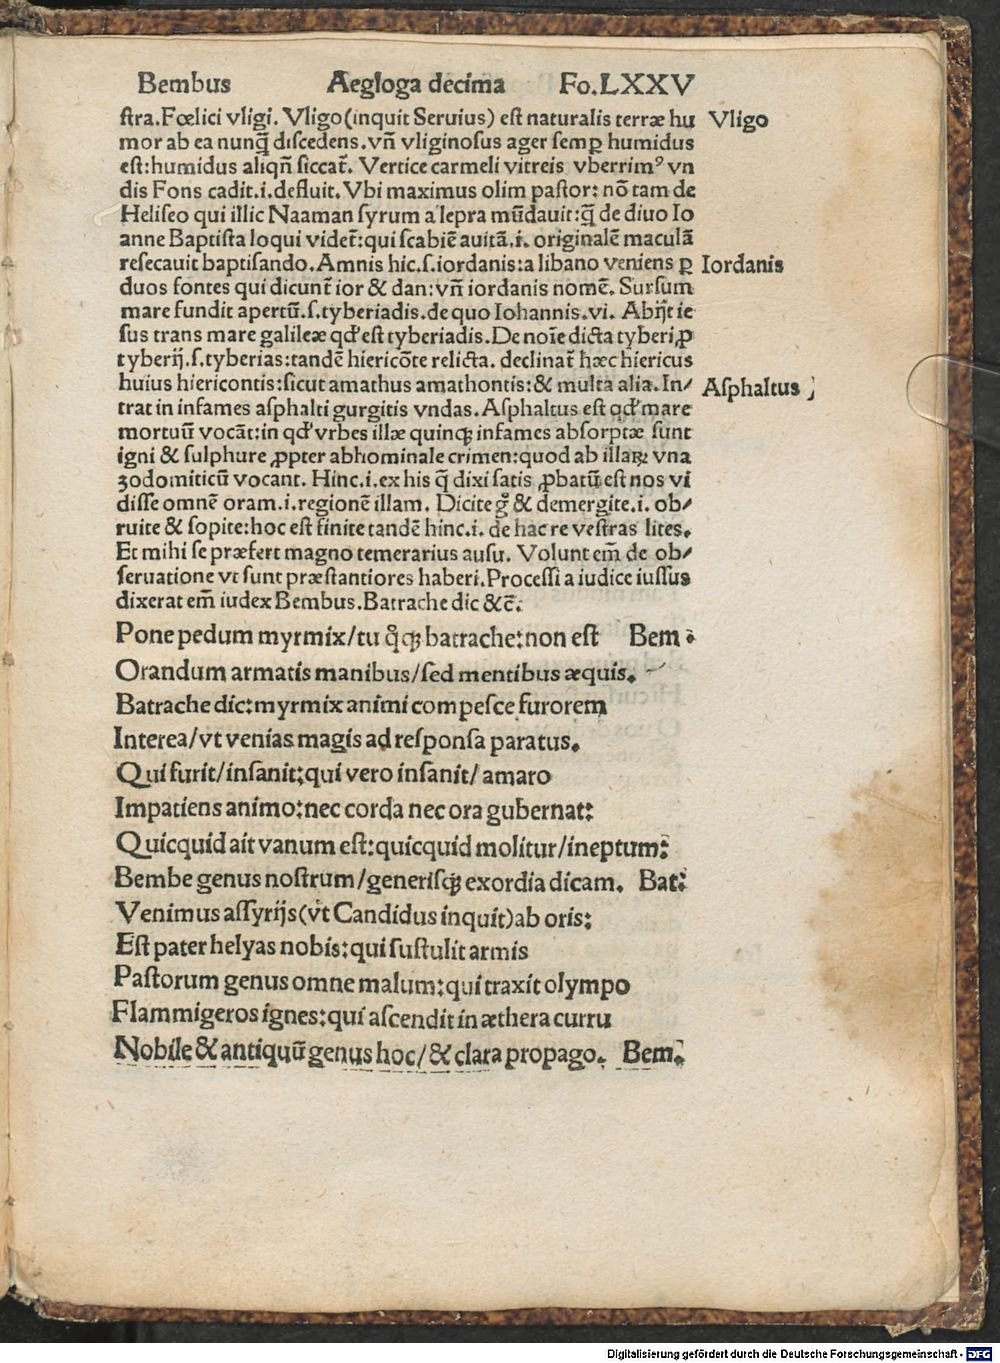 Bembus Aegloga decima Fo.LXXV
ſtra.Fœlici vligi. Vligo(inquit Seruius) eſt naturalis terræ hu Vligo
mor ab ea nunq̄ diſcedens.vñ vliginoſus ager ſemꝑ humidus
eſt:humidus aliqñ ſiccat̄. Vertice carmeli vitreis vberrimꝰ vn
dis Fons cadit.i.defluit. Vbi maximus olim paſtor: nō tam de
Heliſeo qui illic Naaman ſyrum a lepra mūdauit:q̄ de diuo Io
anne Baptiſta loqui videt̄:qui ſcabiē auitā.i. originalē maculā
reſecauit baptiſando.Amnis hic.ſ.iordanis:a libano veniens ꝑ Iordanis
duos fontes qui dicunt̄ ior & dan:vñ iordanis nomē. Surſum
mare fundit apertū.ſ.tyberiadis.de quo Iohannis.vi. Abijt ie
ſus trans mare galileæ qd̓ eſt tyberiadis.De noīe dicta tyberi,ꝓ
tyberij.ſ.tyberias:tandē hiericōte relicta. declinat̄ hæc hiericus
huius hiericontis:ſicut amathus amathontis:& multa alia. In/ Aſphaltus
trat in infames aſphalti gurgitis vndas. Aſphaltus eſt qd̓ mare
mortuū vocāt:in qd̓ vrbes illæ quinqꝫ infames abſorptæ ſunt
igni & ſulphure ꝓpter abhominale crimen:quod ab illaꝝ vna
zodomiticū vocant. Hinc.i.ex his q̄ dixi ſatis ꝓbatū eſt nos vi
diſſe omnē oram.i.regionē illam. Dicite gͦ & demergite.i. ob/
ruite & ſopite:hoc eſt finite tandē hinc.i. de hac re veſtras lites.
Et mihi ſe præfert magno temerarius auſu. Volunt em̄ de ob/
ſeruatione vt ſunt præſtantiores haberi.Proceſſi a iudice iuſſus
dixerat em̄ iudex Bembus.Batrache dic &c̄.
Pone pedum myrmix/tu q̊qꝫ batrache:non eſt Bem.
Orandum armatis manibus/ſed mentibus æquis.
Batrache dic:myrmix animi compeſce furorem
Interea/vt venias magis ad reſponſa paratus.
Qui furit/inſanit:qui vero inſanit/amaro
Impatiens animo:nec corda nec ora gubernat:
Quicquid ait vanum eſt:quicquid molitur/ineptum:
Bembe genus noſtrum/generiſqꝫ exordia dicam. Bat:
Venimus aſſyrijs(vt Candidus inquit)ab oris:
Eſt pater helyas nobis:qui ſuſtulit armis
Paſtorum genus omne malum:qui traxit olympo
Flammigeros ignes:qui aſcendit in æthera curru
Nobile & antiquū genus hoc/& clara propago. Bem.
Digitalisierung gefördert durch die Deutsche Forschungsgemeinschaft - DFG